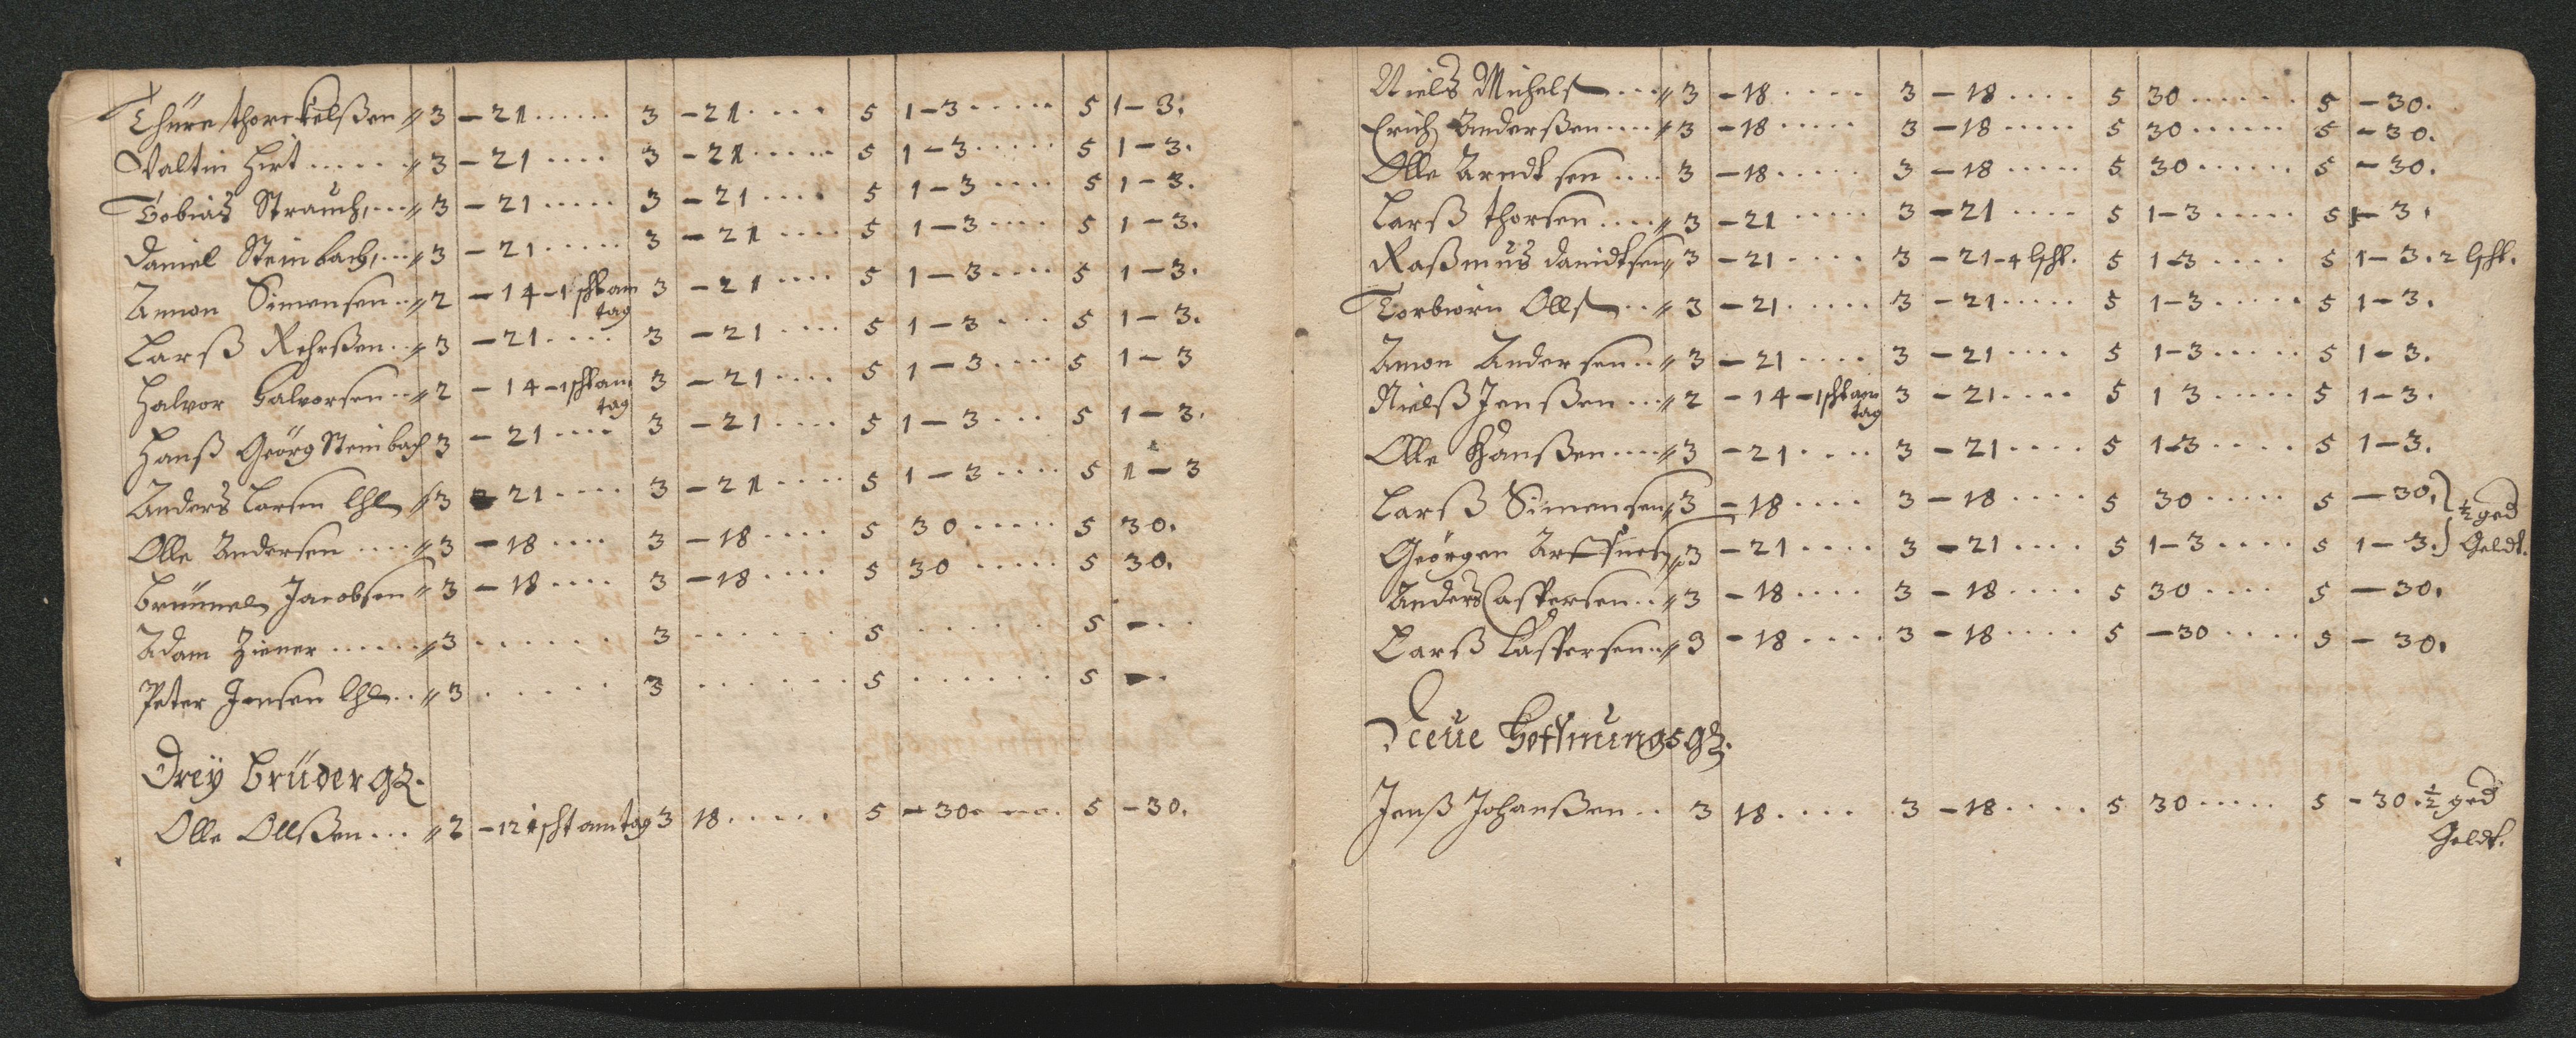 Thüre thorckelßen // 3 - 21 ...... 3 - 21 .... 5 1 - 3 ..... 5 1 - 3.
Valtin Hirt ..... // 3 - 21 .... 3 - 21 ..... 5 1 - 3 ..... 5 1 - 3.
Tobias Strauch, ... // 3 - 21 ..... 3 - 21 .... 5 1 - 3 .... 5 1 - 3.
Daniel Steinbach, ... // 3 - 21 ..... 3 - 21 .... 5 1 - 3 .... 5 1 - 3.
Amon Simensen .. // 2 - 14 - 1 scht am 3 - 21 .... 5 1 - 3 .... 5 1 - 3.
tag
Larß Rehrßen .. // 3 - 21 .... 3 - 21 .... 5 1 - 3 ... 5 1 - 3.
Halvor Halvorsen .. // 2 - 14 - 1 scht am 3 - 21 .... 5 1 - 3 .... 5 1 - 3
tag
Hanß Geörg Steinbach 3 - 21 .... 3 - 21 .... 5 1 - 3 ... 5 1 - 3.
Anders Larsen // 3 - 21 .... 3 - 21 .... 5 1 - 3 .... 5 1 - 3
Olle Andersen .... // 3 - 18 .... 3 - 18 .... 5 30 ..... 5 30.
Brünnel Jacobsen // 3 - 18 .... 3 - 18 .... 5 30 ..... 5 30.
Adam Ziener ...... // 3 ...... 3 ...... 5 ...... 5 - ..
Peter Jensen .. // 3 ..... 3 ...... 5 ...... 5 - .
Drey Brüder gz.
Olle Ollßen ... // 2 - 12 1 scht am tag 3 18 ..... 5 - 30. ... 5 - 30.
Niels Michels ... // 3 - 18 .... 3 - 18 .... 5 30 ...... 5 - 30.
Erich Anderßen .... // 3 - 18 ..... 3 - 18 ..... 5 30 ...... 5 - 30.
Olle Arndtsen .... 3 - 18 ..... 3 - 18 ..... 5 30 ...... 5 - 30.
Larß thorsen .... // 3 - 21 ..... 3 - 21 .... 5 1 - 3 ..... 5 1 - 3.
Raßmus Davidtsen // 3 - 21 .... 3 - 21 - 4 lscht. 5 1 - 3 .... 5 1 - 3. 2 lscht.
Torbiörn Ollß .. // 3 - 21 ..... 3 - 21 ..... 5 1 - 3 ..... 5 1 - 3.
Amon Andersen .. // 3 - 21 .... 3 - 21 .... 5 1 - 3 ..... 5 1 - 3.
Nielß Jenßen ... // 2 - 14 - 1 scht am 3 - 21 .... 5 1 3 ..... 5 1 - 3.
tag
Olle Hanßen .... // 3 - 21 .... 3 - 21 .... 5 1 - 3 .... 5 1 - 3.
Larß Simensen // 3 - 18 .... 3 - 18 .... 5 30 ..... 5 - 30. } ½ ged
Geörgen // 3 - 21 .... 3 - 21 .... 5 1 - 3 .... 5 1 - 3. } Geldt.
Anders Caspersen .. // 3 - 18 .... 3 - 18 .... 5 30 .... 5 - 30.
Larß Caspersen .. // 3 - 18 .... 3 - 18 .... 5 - 30 .... 5 - 30.
Neue Hoffnungs gz.
Jenß Johanßen .. 3 18 .... 3 - 18 .... 5 30 ..... 5 - 30. ½ ged
Geldt.